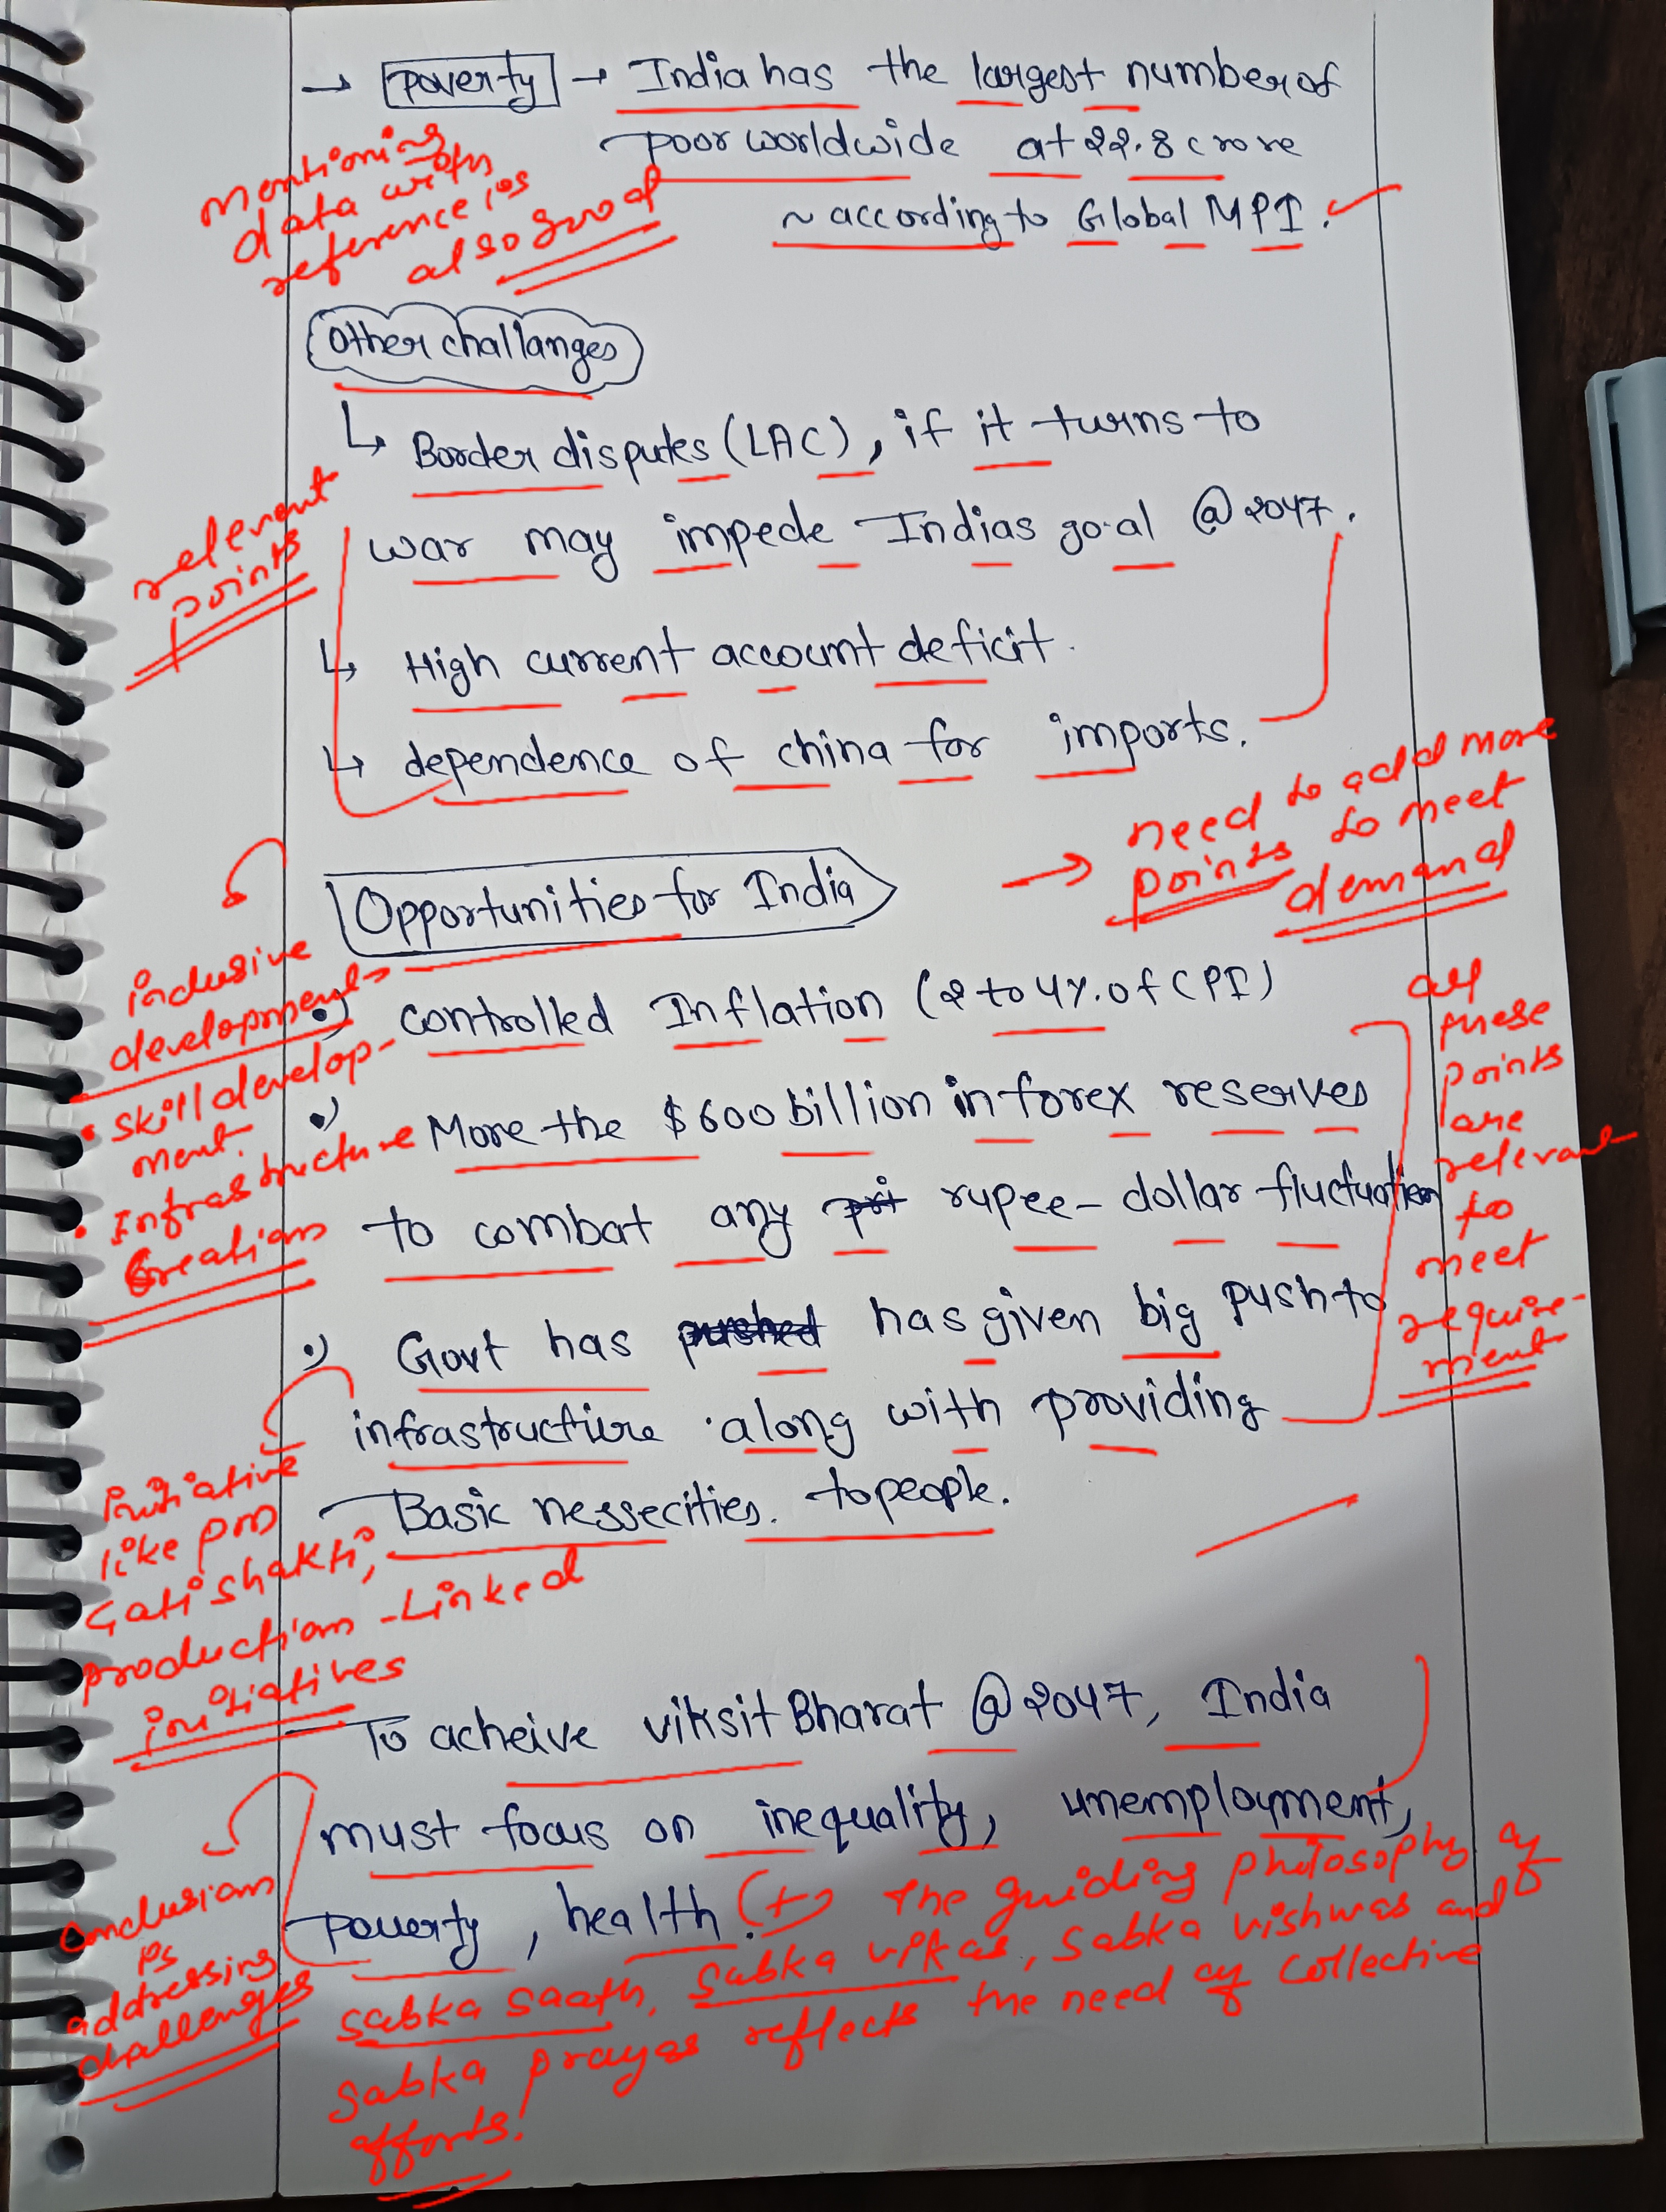 → Poverty → India has the largest number of
poor worldwide at 22.8 crore
~ according to Global MPI.
mentioning
data with
reference is
also good
Other challanges
↳ Border disputes (LAC), if it turns to
war may impede Indias goal @2047.
↳ High current account deficit.
↳ dependence of china for imports.
relevant
points
Opportunities for India
→ need to add more
points to meet
demand
•) controlled Inflation (2 to 4% of CPI)
•) More the $600 billion in forex reserves
to combat any rupee-dollar fluctuation
•) Govt has pushed has given big push to
infrastructure along with providing
Basic nessecities. to people.
inclusive
development
• skill develop-
ment.
• Infrastructure
Creation
all
these
points
are
relevant
to
meet
require-
ment
initiative
like pm
Gati shakti,
production-Linked
initiatives
To acheive viksit Bharat @2047, India
must focus on inequality, unemployment,
poverty, health.
(+) The guiding philosophy of
sabka saath, sabka vikas, sabka vishwas and
sabka prayas reflects the need of collective
efforts!
Conclusion
is
addressing
challenges